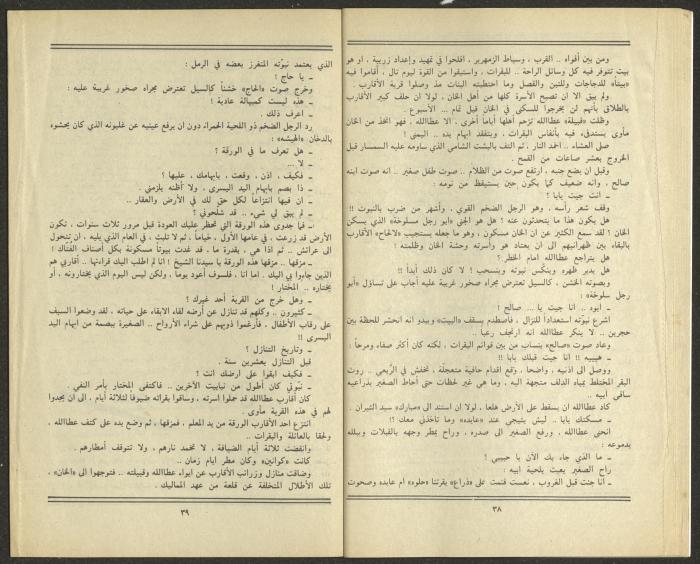 الذي يعتمد نبوّته المنغرز بعضه في الرمل :
ـ يا حاج !
وخرج صوت «الحاج» خشناً كالسيل تعترض مجراه صخور غريبة عليه :
ـ هذه ليست كمبيالة عادية !
ـ اعرف ذلك .
رد الرجل الضخم ذو اللحية الحمراء دون ان يرفع عينيه عن غليونه الذي كان يحشوه
بالدخان «الهيشه» :
ـ هل تعرف ما في الورقة ؟
ـ لا ...
ـ فكيف ، اذن ، وقعت ، بابهامك ، عليها ؟
ـ ذا بصم بابهام اليد اليسرى ، ولا أظنه يلزمني .
ـ ان فيها انتزاعاً لكل حق لك في الأرض والعقار ..
ـ لم يبق لي شيء .. قد شلحوني !
ـ فما جدوى هذه الورقة التي تحظر عليك العودة قبل مرور ثلاث سنوات ، تكون
الأرض قد زرعت ، في عامها الأول ، خياماً ، ثم لا تلبث ، في العام الذي يليه ، ان تتحول
الى عرائش .. ثم اذا هي ، بقدرة ما ، قد غدت بيوتاً مسكونة بكل أصناف الفتّاك !
ـ مزقها .. مزقها هذه الورقة يا سيدنا الشيخ ! انا لم اطلب اليك قراءتها .. أقاربي هم
الذين جاءوا بي اليك . اما انا ، فلسوف أعود يوماً ، ولكن ليس اليوم الذي يختارونه ، أو
يختاره .. المختار !
ـ وهل خرج من القرية أحد غيرك ؟
ـ كثيرون .. وكلهم قد تنازل عن أرضه لقاء الابقاء على حياته ، لقد وضعوا السيف
على رقاب الأطفال ، فأرغموا ذويهم على شراء الأرواح .. الصغيرة ببصمة من ابهام اليد
اليسرى !!
ـ وتاريخ التنازل ؟
ـ قبل التنازل بعشرين سنة .
ـ فكيف ابقوا على ارضك انت ؟
ـ نبّوتي كان أطول من نبابيت الآخرين .. فاكتفى المختار بأمر النفي .
كان أقارب عطاالله قد حملوا اسرته ، وساقوا بقراته ضيوفاً لثلاثة أيام ، الى ان يجدوا
لهم في هذه القرية مأوى .
انتزع احد الأقارب الورقة من يد المعلم ، فمزقها ، ثم وضع يده على كتف عطاالله ،
ولحقا بالعائلة والبقرات ..
وانقضت ثلاثة أيام الضيافة ، لا تخمد نارهم ، ولا تتوقف أمطارهم .
كانت «كوانين» وكان مطر ايام زمان ..
وضاقت منازل وزرائب الأقارب عن ايواء عطاالله وقبيلته .. فتوجهوا الى «الخان» ،
تلك الأطلال المتخلفة عن قلعة من عهد المماليك .
٣٩
ومن بين أفواه .. القرب ، وسياط الزمهرير ، افلحوا في تمهيد وإعداد زريبة ، او هو
بيت تتوفر فيه كل وسائل الراحة .. للبقرات ، واستبقوا من القوة ليوم تال ، أقاموا فيه
«بيتاً» للدجاجات وللتبن والفصل وما احتطبته البنات مذ وصلوا قرية الأقارب .
ولم يبق الا ان تصبح الأسرة كلها من أهل الخان ، لولا ان حلف كبير الأقارب
بالطلاق بأنهم لن يخرجوا للسكنى في الخان قبل تمام ... الأسبوع ..
وظلت «قبيلة» عطاالله تزحم أهلها أياماً أخرى ، الا عطاالله ، فهو اتخذ من الخان
مأوى يستدفىء فيه بأنفاس البقرات ، ويتفقد ابهام يده .. اليمنى !
صلى العشاء .. اخمد النار ، ثم التف بالبشت الشامي الذي ساومه عليه السمسار قبل
الخروج بعشر صاعات من القمح .
وقبل ان يضع جنبه ، ارتفع صوت من الظلام .. صوت طفل صغير .. انه صوت ابنه
صالح ، وانه ضعيف كما يكون حين يستيقظ من نومه :
ـ انت جيت يابا ؟
وقف شعر رأسه ، وهو الرجل الضخم القوي ، وأشهر من ضرب بالنبوت !!
هل يكون هذا ما يتحدثون عنه ؟ هل هو الجني «ابو رجل مسلوخة» الذي يسكن
الخان ؟ لقد سمع الكثير عن ان الخان مسكون ، وهو ما جعله يستجيب «لالحاح» الأقارب
بالبقاء بين ظهرانيهم الى ان يعتاد هو وأسرته وحشة الخان وظلمته !
هل يتراجع عطاالله امام الخطر ؟
هل يدير ظهره وينكّس نبوته وينسحب ! لا كان ذلك أبداً !!
وبصوته الخشن ، كالسيل تعترض مجراه صخور غريبة عليه أجاب على تساؤل «أبو
رجل سلوخة» :
ـ ايوه .. انا جيت يا ... صالح !
اشرع نبوّته استعداداً للنزال ، فاصطدم بسقف «البيت» ويبدو انه انحشر للحظة بين
حجرين .. لا ينكر عطاالله انه ارتجف رعباً ..
وعاد صوت «صالح» ينساب من بين قوائم البقرات ، لكنه كان أكثر صفاء ومرحاً :
ـ هيييه !! انا جيت قبلك يابا !!
ووصل الى اذنيه ، واضحا ، وقع اقدام حافية متعجلة ، تخفش في الزبعي .. روث
البقر المختلط بمياه الدلف متجهة اليه . وما هي غير لحظات حتى أحاط الصغير بذراعيه
ساقي ابيه ..
كاد عطاالله ان يسقط على الأرض هلعا ، لولا ان استند الى «مبارك» سيد الثيران .
ـ مسكتك يابا .. ليش بتيجي عند «عابده» وما تاخذني معك !؟
انحنى عطاالله ، ورفع الصغير الى صدره ، وراح يمطر وجهه بالقبلات ويبلله
بدموعه :
ـ ما الذي جاء بك الآن يا حبيبي !
راح الصغير يعبث بلحية ابيه :
ـ أنا جئت قبل الغروب ، نعست فنمت على «ذراع» بقرتنا «حلوه» ام عابده وصحوت
٣٨